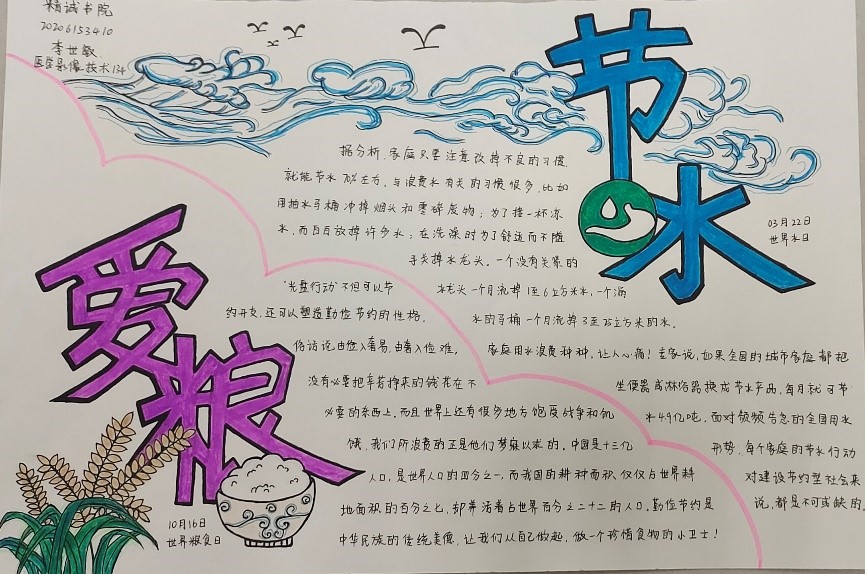 精诚书院
20206153410
李世敏
医学影像技术134
节水
03月22日
世界水日
据分析,家庭只要注意改掉不良的习惯,
就能节水70%左右,与浪费水有关的习惯很多,比如
用抽水马桶冲掉烟头和零碎废物;为了接一杯冻
水,而白白放掉许多水;在洗澡时为了舒适而不随
手关掉水龙头。一个没有关紧的
水龙头一个月流掉1至6立方米水,一个漏
水的马桶一个月流掉3至25立方米的水。
家庭用水浪费种种,让人心痛!专家说,如果全国的城市家庭都把
坐便器或淋浴器换成节水产品,每月就可节
水4.9亿吨,面对频频告急的全国用水
形势,每个家庭的节水行动
对建设节约型社会来
说,都是不可或缺的。
爱粮
10月16日
世界粮食日
"光盘行动"不但可以节
约开支,还可以塑造勤俭节约的性格。
俗访说由俭入奢易,由奢入俭难,
没有必要把辛苦挣来的钱花在不
必要的东西上,而且世界上还有很多地方饱受战争和饥
饿,我们所浪费的正是他们梦寐以求的。中国是十三亿
人口,是世界人口的四分之一,而我国的耕种面积仅仅占世界耕
地面积的百分之七,却养活着占世界百分之二十二的人口,勤俭节约是
中华民族的传统美德,让我们从自己做起,做一个珍惜食物的小卫士!